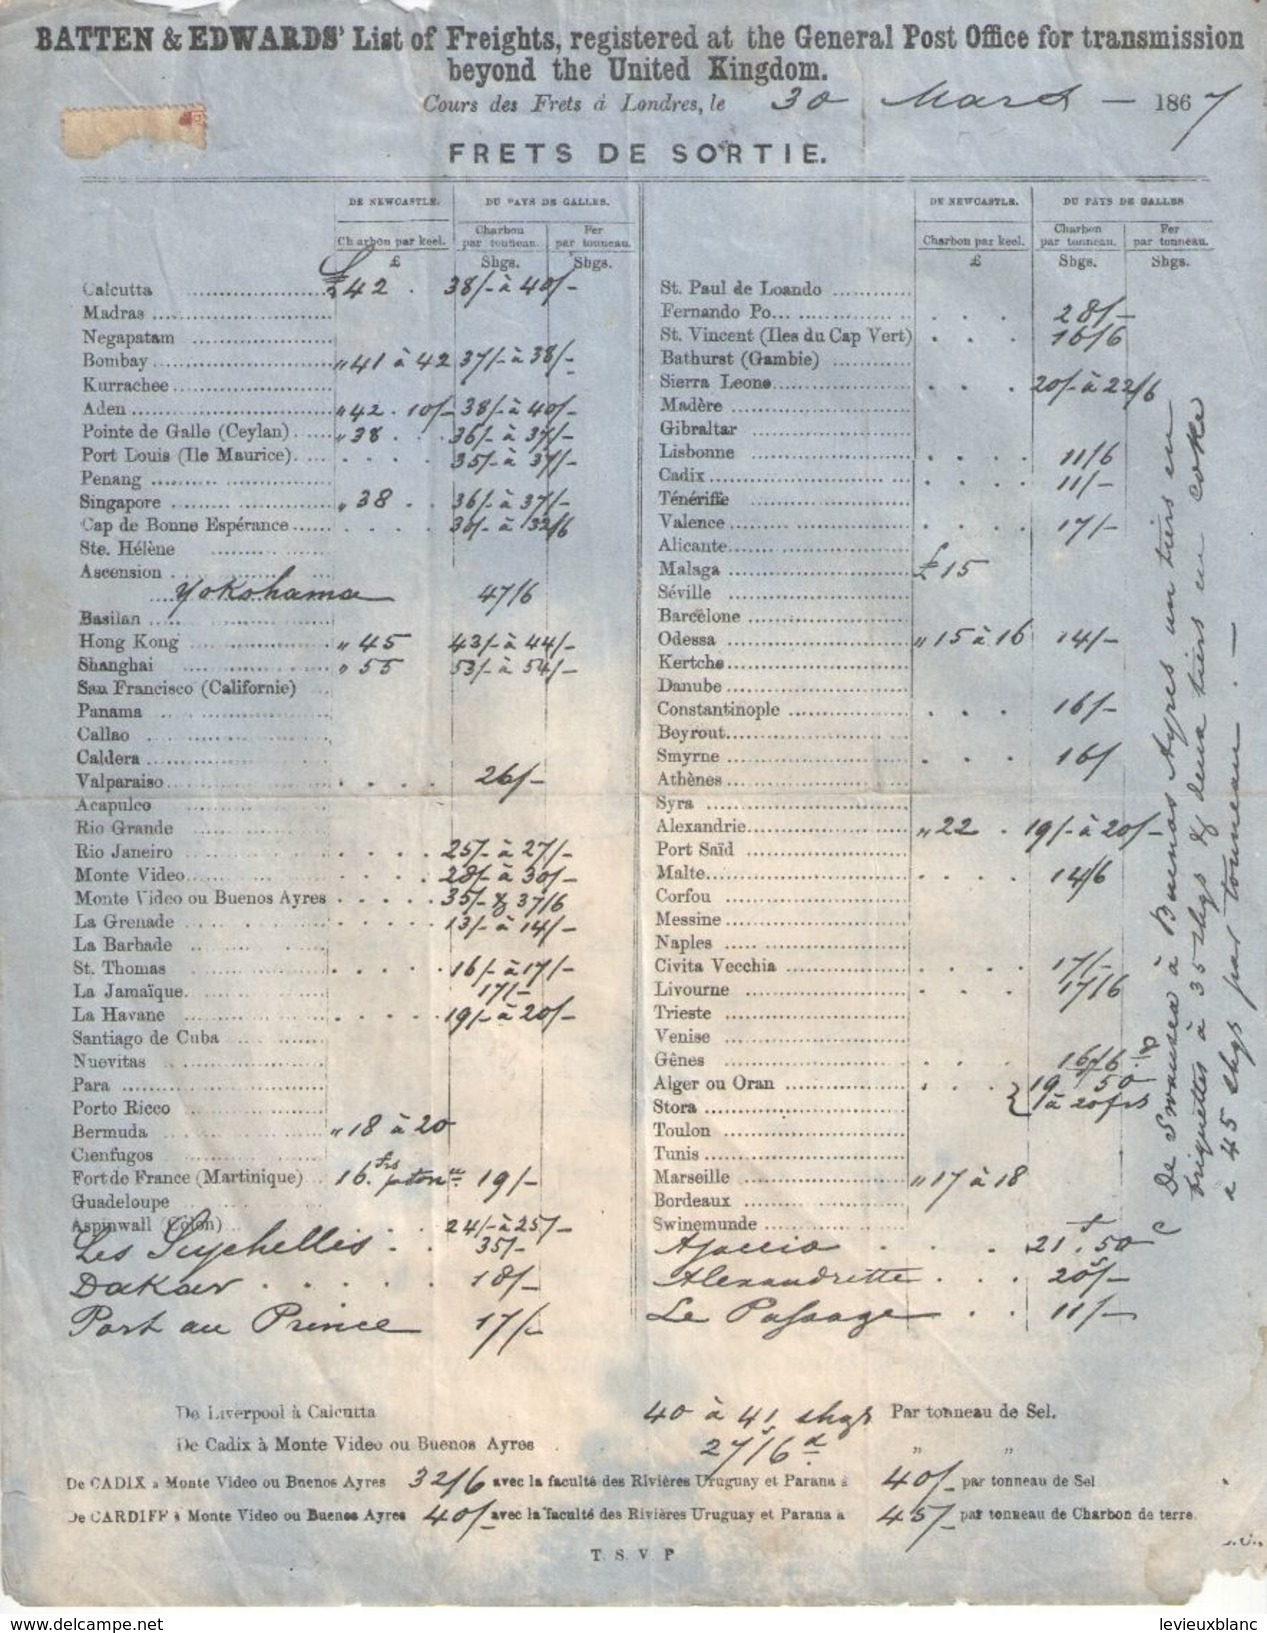 BATTEN & EDWARDS' List of Freights, registered at the General Post Office for transmission
beyond the United Kingdom.
Cours des Frets à Londres, le 30 Mars — 1867
FRETS DE SORTIE.
DE NEWCASTLE. DU PAYS DE GALLES.
Charbon par keel. Charbon par tonneau. Fer par tonneau.
£ Shgs. Shgs.
Calcutta £42 . 38/- à 40/-
Madras
Negapatam
Bombay " 41 à 42 37/- à 38/-
Kurrachee
Aden " 42 . 10/- 38/- à 40/-
Pointe de Galle (Ceylan) " 38 . . 36/- à 37/-
Port Louis (Ile Maurice) . . . . 35/- à 37/-
Penang
Singapore " 38 . . 36/- à 37/-
Cap de Bonne Espérance . . . . 30/- à 32/6
Ste. Hélène
Ascension
Yokohama 47/6
Basilan
Hong Kong " 45 43/- à 44/-
Shanghai " 55 53/- à 54/-
San Francisco (Californie)
Panama
Callao
Caldera
Valparaiso . . . . 26/-
Acapulco
Rio Grande
Rio Janeiro . . . . 25/- à 27/-
Monte Video . . . . 28/- à 30/-
Monte Video ou Buenos Ayres . . . . . 35/- & 37/6
La Grenade . . . . 13/- à 14/-
La Barbade
St. Thomas . . . . 16/- à 17/-
La Jamaïque. 17/-
La Havane . . . . . 19/- à 20/-
Santiago de Cuba
Nuevitas
Para
Porto Ricco
Bermuda " 18 à 20
Cienfugos
Fort de France (Martinique) 16. frs p. ton^ne 19/-
Guadeloupe
Aspinwall (Colon) . . 24/- à 25/-
Les Seychelles . . 35/-
Dakar . . . . . 18/-
Port au Prince 17/-
DE NEWCASTLE. DU PAYS DE GALLES
Charbon par keel. Charbon par tonneau. Fer par tonneau.
£ Shgs. Shgs.
St. Paul de Loando
Fernando Po . . . 28/-
St. Vincent (Iles du Cap Vert) . . . 16/6
Bathurst (Gambie)
Sierra Leone . . . 20/- à 22/6
Madère
Gibraltar
Lisbonne . . . . 11/6
Cadix . . . . 11/-
Ténériffe
Valence . . . . 17/-
Alicante
Malaga £ 15
Séville
Barcelone
Odessa " 15 à 16 14/-
Kertche
Danube
Constantinople . . . 16/-
Beyrout
Smyrne . . . 16/
Athènes
Syra
Alexandrie " 22 . 19/- à 20/-
Port Saïd
Malte . . . . 14/6
Corfou
Messine
Naples
Civita Vecchia . . . . 17/-
Livourne . . . 17/6
Trieste
Venise
Gênes . . . 16/6
Alger ou Oran . . . 19 f 50
Stora à 20 frs
Toulon
Tunis
Marseille " 17 à 18
Bordeaux
Swinemunde
Ajaccio . . . 21 f. 50 c
Alexandrette . . . 20/-
Le Passage . . 11/-
De Swansea à Buenos Ayres un tiers en
briquettes à 35 shgs & deux tiers en coke
à 45 shgs par tonneau. —
De Liverpool à Calcutta 40 à 41 shgs Par tonneau de Sel.
De Cadix à Monte Video ou Buenos Ayres . 27s/6d. " "
De CADIX à Monte Video ou Buenos Ayres 32/6 avec la faculté des Rivières Uruguay et Parana à 40/- par tonneau de Sel
De CARDIFF à Monte Video ou Buenos Ayres 40/- avec la faculté des Rivières Uruguay et Parana à 45/- par tonneau de Charbon de terre.
T. S. V. P
www.delcampe.net
levieuxblanc